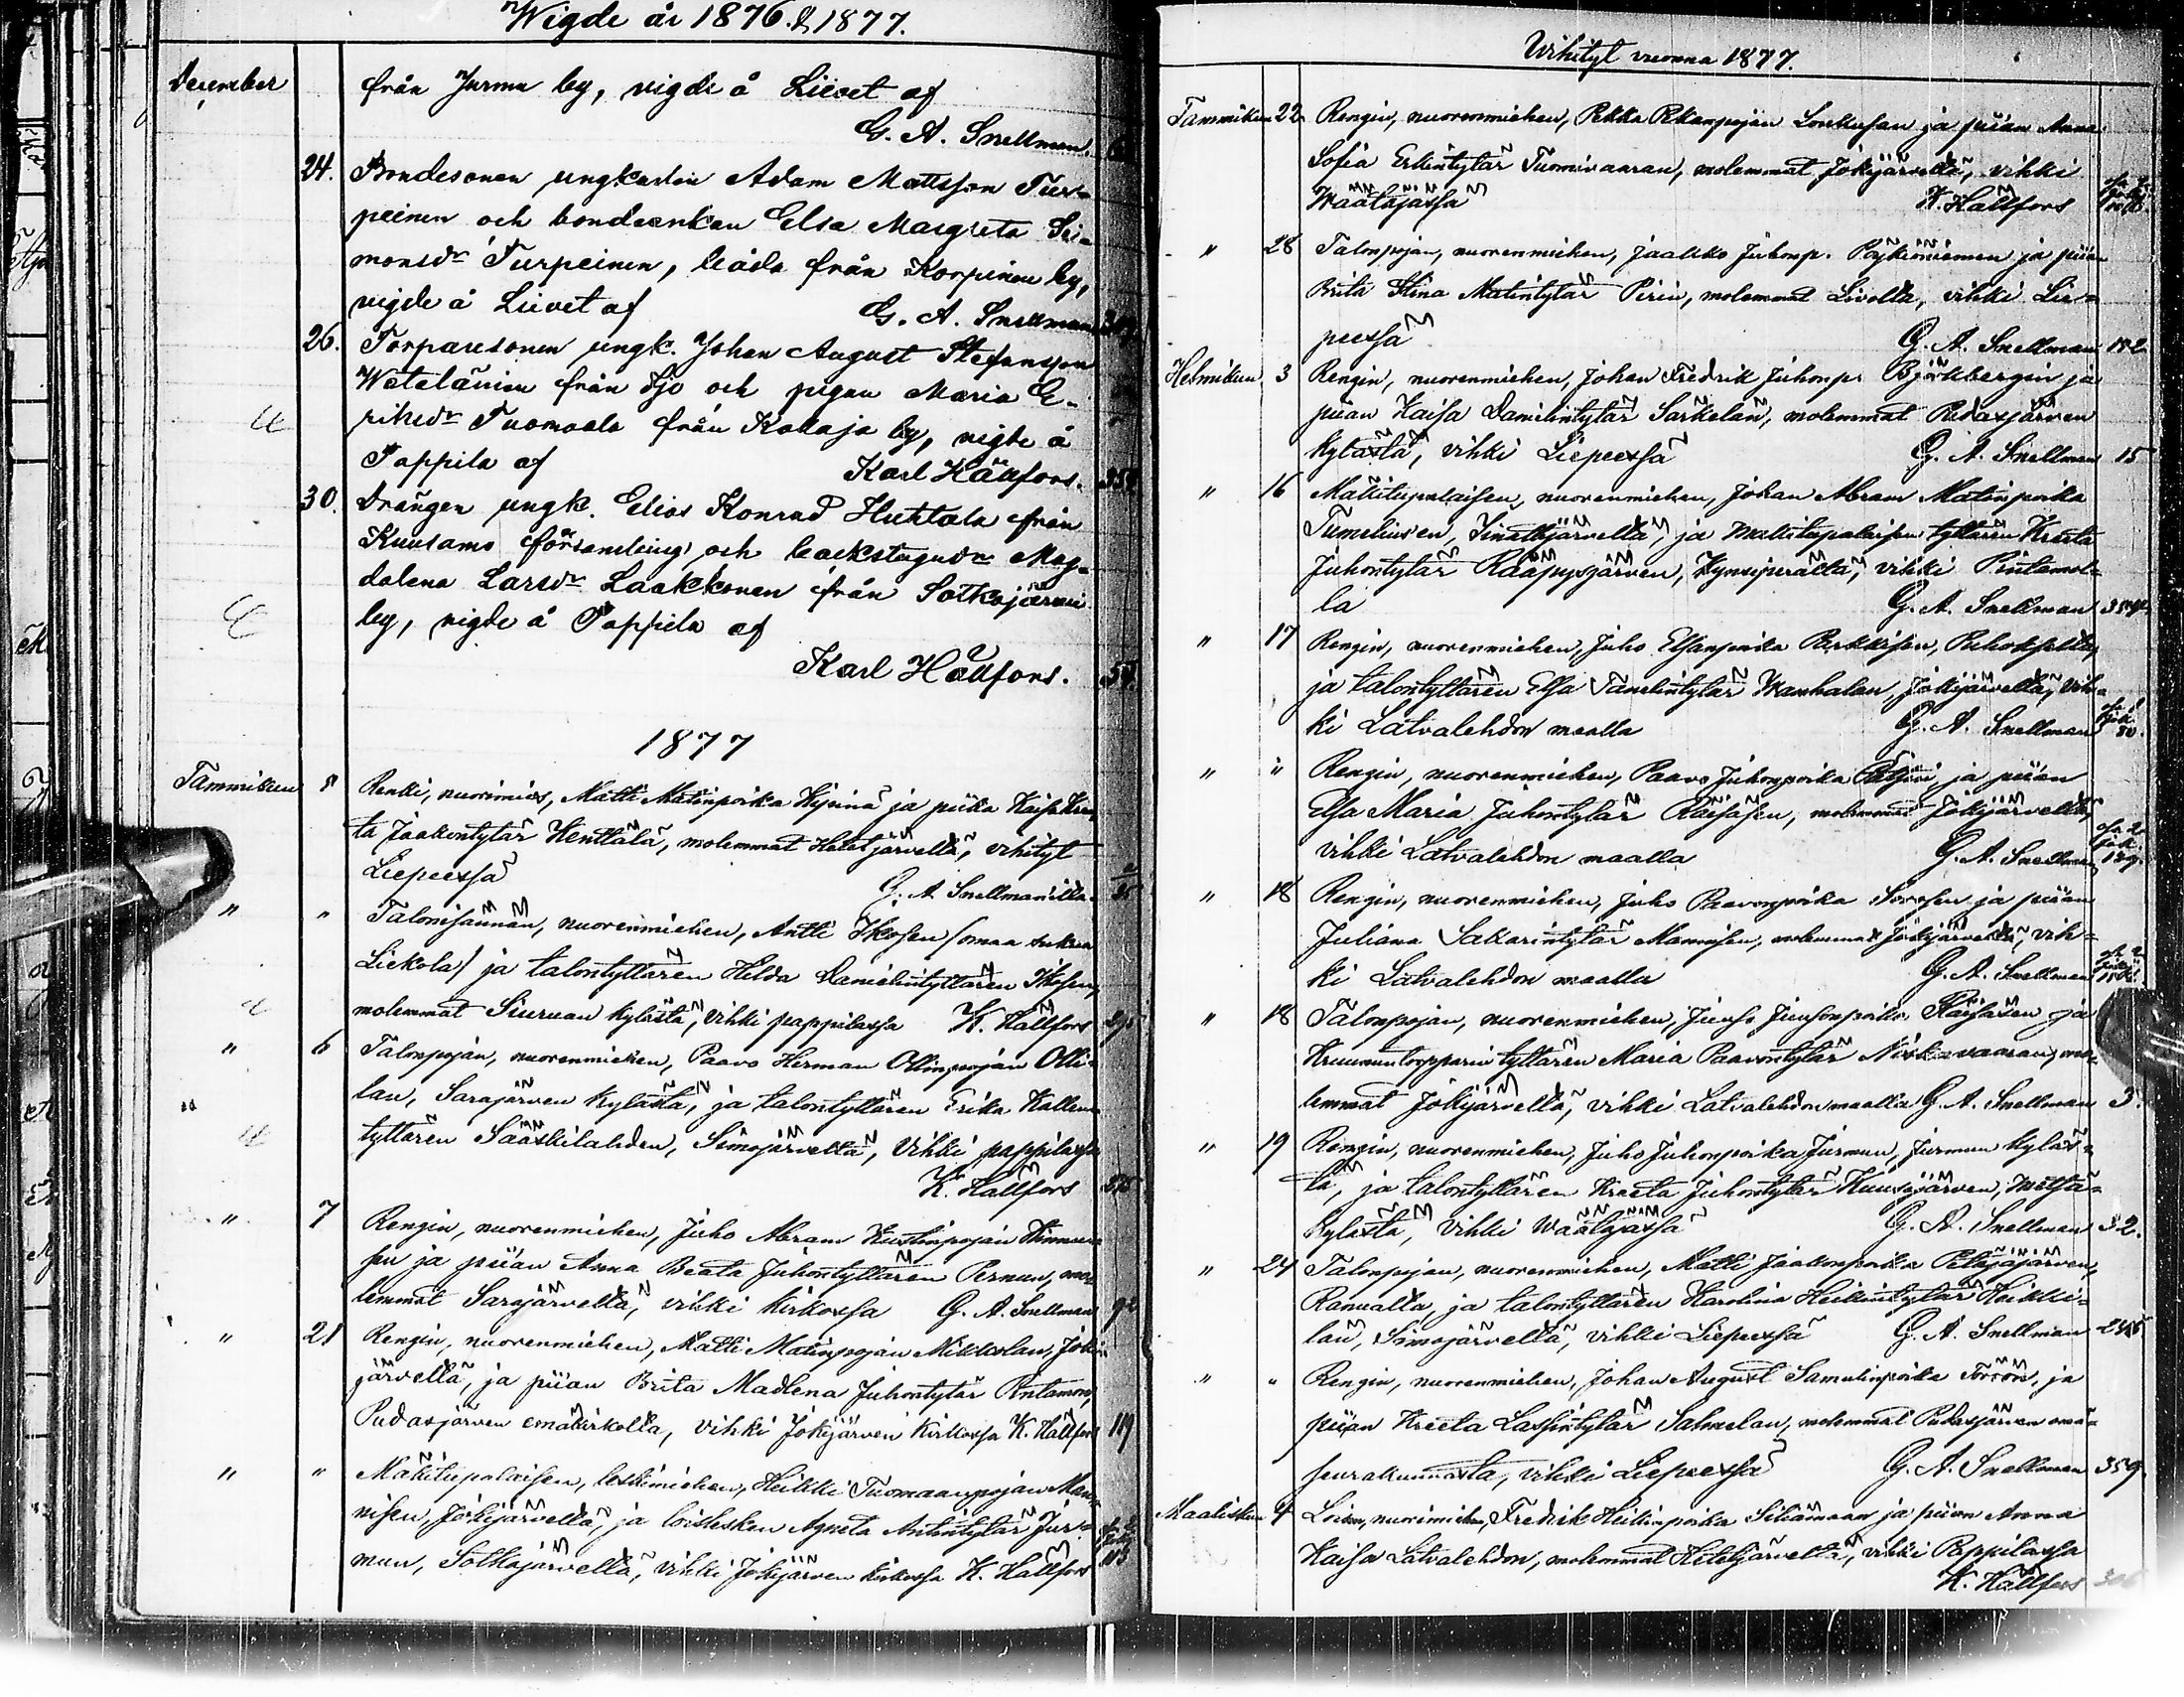 Wigde år 1876. & 1877.
December
från Jurmu by, vigde å Lievet af
G. A. Snellman.
24. Bondesonen ungkarlen Adam Mattsson Tur-
peinen och bondeenkan Elsa Margreta Si-
monsdr Turpeinen, båda från Korpinen by,
vigde å Liivet af G. A. Snellman
26. Torparesonen ungk. Johan August Stefansson
Wetelänien från Ijo och pigan Maria E-
riksdr Tuomaala från Kollaja by, vigde å
Pappila af Karl Hällfors. 358
30. Drängen ungk. Elias Konrad Huhtala från
Kuusamo församling och backstugudr Mag-
dalena Larsdr Laakkonen från Sotkajärvi
by, vigde å Pappila af
Karl Hällfors. 54.
1877
Tammikuu 1 Renki, nuorimies, Matti Matinpoika ja piika Kaisa Kree-
ta Jaakontytär Henttala, molemmat Hetejärveltä, vihityt
Liepeessä G. A. Snellmanilta.
" " Talonisännän, nuorenmiehen, Antti Ikosen (omaa sukua
Liekola) ja talontyttären Hilda Danielintyttären Ikosen,
molemmat Siuruan kylästä, vihki pappilassa K. Hällfors
" 6 Talonpojan, nuorenmiehen, Paavo Herman Ollinpojan Olli-
lan, Sarajärven kylästä, ja talontyttären Erika Kallen-
tyttären Sääskilahden, Simojärveltä, vihki pappilassa
K. Hällfors
" 7 Rengin, nuorenmiehen, Juho Abram Kustinpojan
sen ja piian Anna Beata Juhontyttären Pernun, mo-
lemmat Sarajärveltä, vihki kirkossa G. A. Snellman
" 21 Rengin, nuorenmiehen, Matti Matinpojan Mikkolan, Joki-
järveltä, ja piian Brita Madlena Juhontytär Rintamon,
Pudasjärven emäkirkolta, vihki Jokijärven kirkossa K. Hällfors 119
" " Mäkitupalaisen, leskimiehen, Heikki Tuomaanpojan Man-
nisen, Jokijärveltä, ja loislesken Agneta Antintytär Jur-
mun, Sotkajärveltä, vihki Jokijärven kirkossa K. Hällfors
Vihityt vuonna 1877.
Tammikuu 22 Rengin, nuorenmiehen, Pekka Pekanpojan Loukusan ja piian Anna
Sofia Erkintytär Tuomivaaran, molemmat Jokijärveltä, vihki
Wäätäjässä K. Hällfors
" 28 Talonpojan, nuorenmiehen, Jaakko Juhonp. Pöykiöniemen ja piian
Brita Stina Matintytär Pirin, molemmat Livolta, vihki Lie-
peessä G. A. Snellman 182
Helmikuu 3 Rengin, nuorenmiehen, Johan Fredrik Juhonp. Björkbergin ja
piian Kaisa Danielintytär Särkelän, molemmat Pudasjärven
kylästä, vihki Liepeessä G. A. Snellman 15
" 16 Mäkitupalaisen, nuorenmiehen, Johan Abram Matinpoika
Tumeliusen, Iinattijärveltä, ja mäkitupalaisen tyttären Kreeta
Juhontytär Rääpysjärven, Kynsiperältä, vihki Rintamol-
la G. A. Snellman
" 17 Rengin, nuorenmiehen, Juho Elsanpoika Parkkisen, Puhokselta,
ja talontyttären Elsa Tanelintytär Wanhalan, Jokijärveltä, vih-
ki Latvalehdon maalla G. A. Snellman
" " Rengin, nuorenmiehen, Paavo Juhonpoika ja piian
Elsa Maria Juhontytär Räisäsen, molemmat Jokijärveltä,
vihki Latvalehdon maalla G. A. Snellman
" 18 Rengin, nuorenmiehen, Juho Paavonpoika Sorosen ja piian
Juliana Sakarintytär Mannisen, molemmat Jokijärveltä, vih-
ki Latvalehdon maalla G. A. Snellman
" 18 Talonpojan, nuorenmiehen, Juuso Juusonpoika Räisäsen ja
Kruununtorpparin tyttären Maria Paavontytär Niskavaaran, mo-
lemmat Jokijärveltä, vihki Latvalehdon maalla G. A. Snellman 3.
" 19 Rengin, nuorenmiehen, Juho Juhonpoika Jurmun, Jurmun kyläs-
tä, ja talontyttären Kreeta Juhontytär Kuusijärven, Metsä-
kylästä, vihki Wäätäjässä G. A. Snellman 32.
" 24 Talonpojan, nuorenmiehen, Matti Jaakonpoika Petäjäjärven,
Ranualta, ja talontyttären Karolina Heikintytär Heikki-
län, Simojärveltä, vihki Liepeessä G. A. Snellman
" " Rengin, nuorenmiehen, Johan August Samulinpoika Törrön, ja
piian Kreeta Lassintytär Salmelan, molemmat Pudasjärven emä-
seurakunnasta, vihki Liepeessä G. A. Snellman 359.
Maaliskuu 4 Loisen, nuorimiehen, Fredrik Heikinpoika Siliämaan ja piian Anna
Kaisa Latvalehdon, molemmat Hetejärveltä, vihki Pappilassa
K. Hällfors